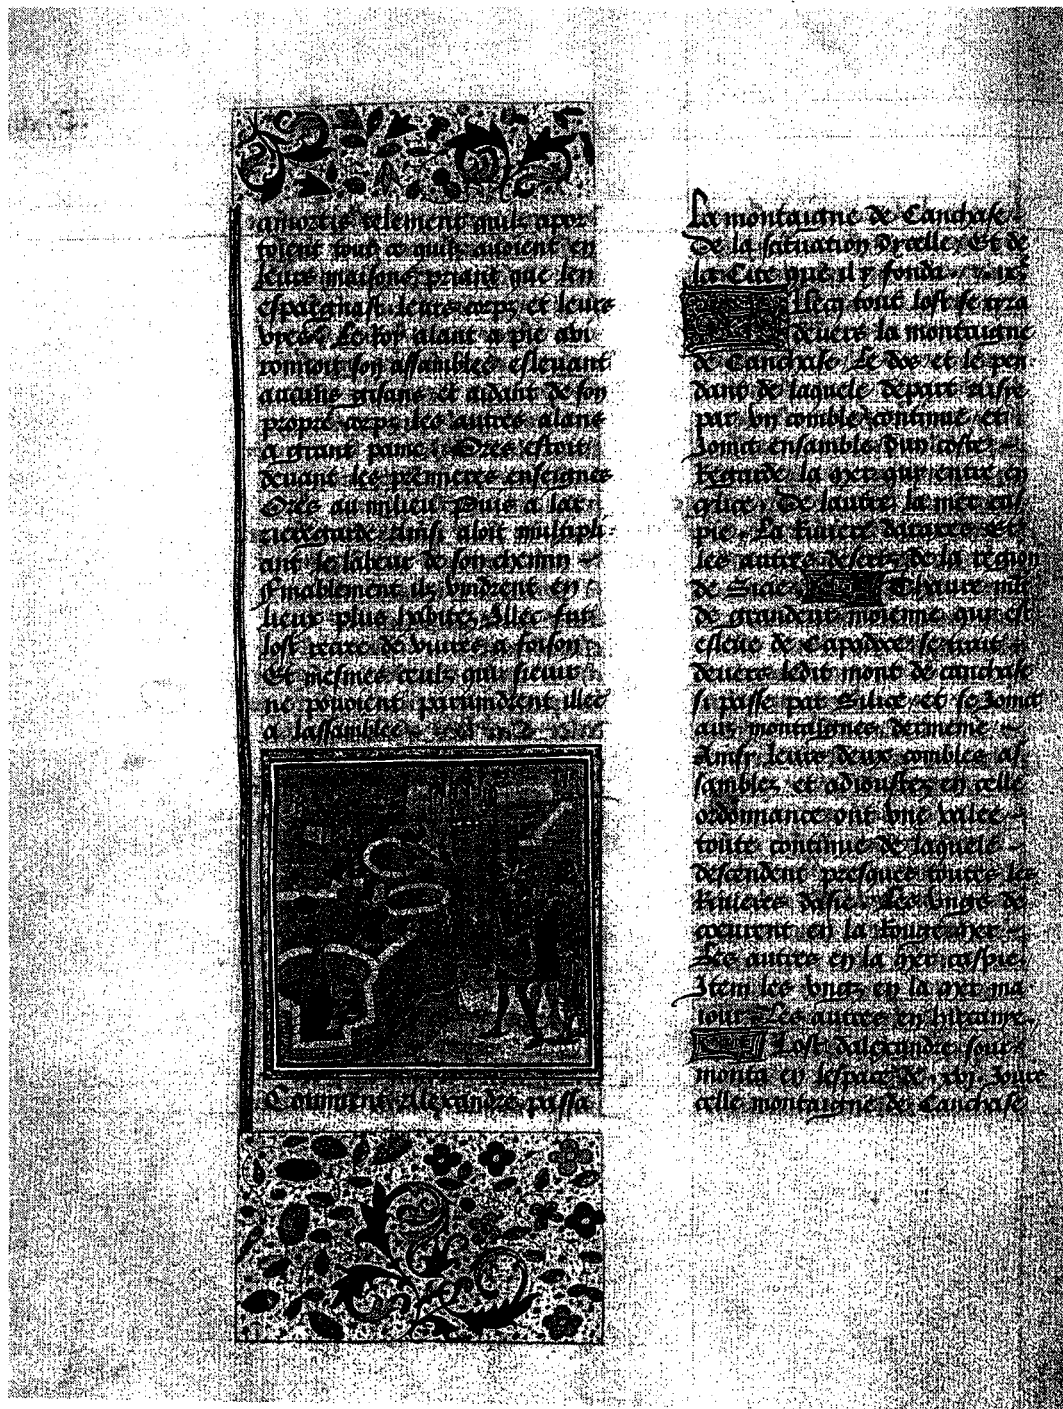 amortis telement quilz apor
toient tout ce quilz auoient en
leurs maisons priant que len
espargnast leurs corpz et leurs
Le roy alant a pie abi
ronnoit son assamblee esleuant
aucuns gisans et aidant de son
propre corpz les autres alans
a grant paine Ores estoit
deuant les premieres enseignes
Ores au milieu Puis a lar
rieregarde Ainsi aloit multipli
ant le labeur de son chemin
Finablement ilz vindrent en
lieux plus habitez Illec fut
lost de viures a foison
Et mesmes ceulz qui sieuir
ne pouoient paruindrent illec
a lassamblee
Comment Alexandre passa
La montaigne de Cauchase
De la situation dicelle Et de
la Cite que il y fonda
Illec tout lost se tira
deuers la montaigne
de Cauchase Le dos et le pen
dant de laquele depart Asye
par vn comble continue et
Joint ensamble Dun coste
Regarde la mer qui entre en
De lautre la mer cas
pie La riuiere
les autres desers de la region
de Thaure mō
de grandeur moienne qui est
esleue de Capadoce se trait
deuers ledit mont de cauchase
si passe par Silice et se Joint
aux montaignes dermenie
Ainsi leurs deux combles as
samblez et adioustez en celle
ordonnance ont vne
toute continue de laquele
descendent presques toutes les
Riuieres dasie Les vnges de
ceurent en la Rouge mer
Les autres en la mer caspie
Item les vngz en la mer ma
iour Les autres en hircanie
Lost dalexandre sour
monta en lespace de .xvij. Jours
celle montaigne de Cauchase